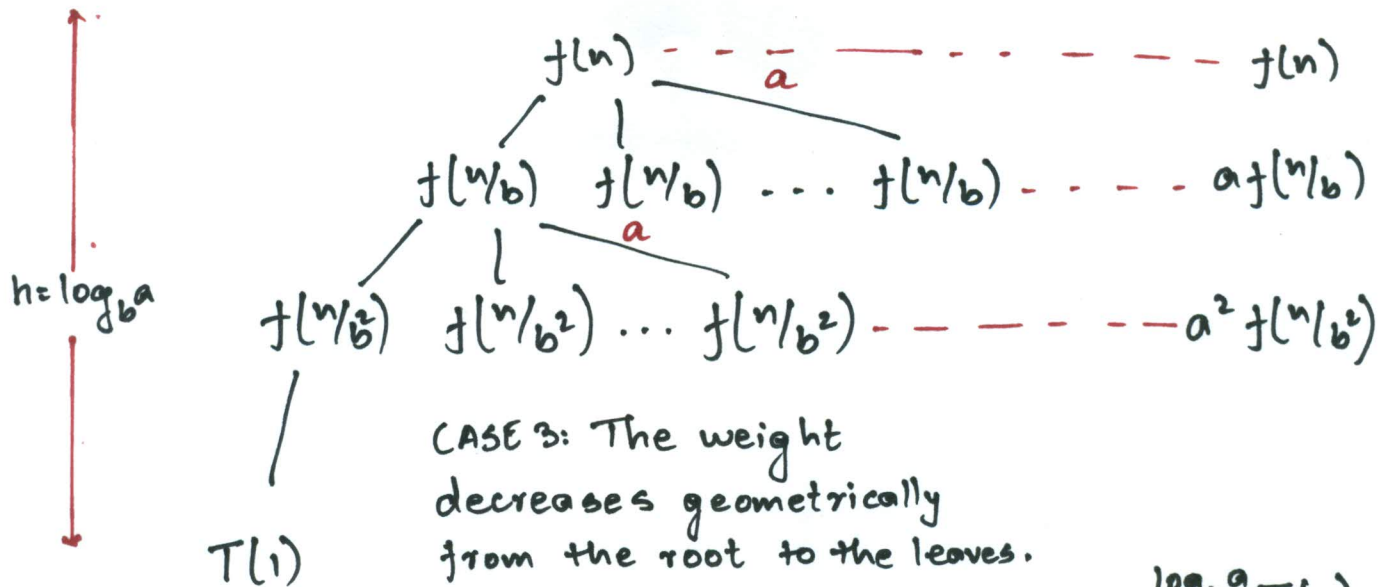 f(n) a f(n)
f(n/b) f(n/b) ... f(n/b) a f(n/b)
a
h=log_b a
f(n/b²) f(n/b²) ... f(n/b²) a² f(n/b²)
CASE 3: The weight
decreases geometrically
from the root to the leaves.
T(1)
log_b a